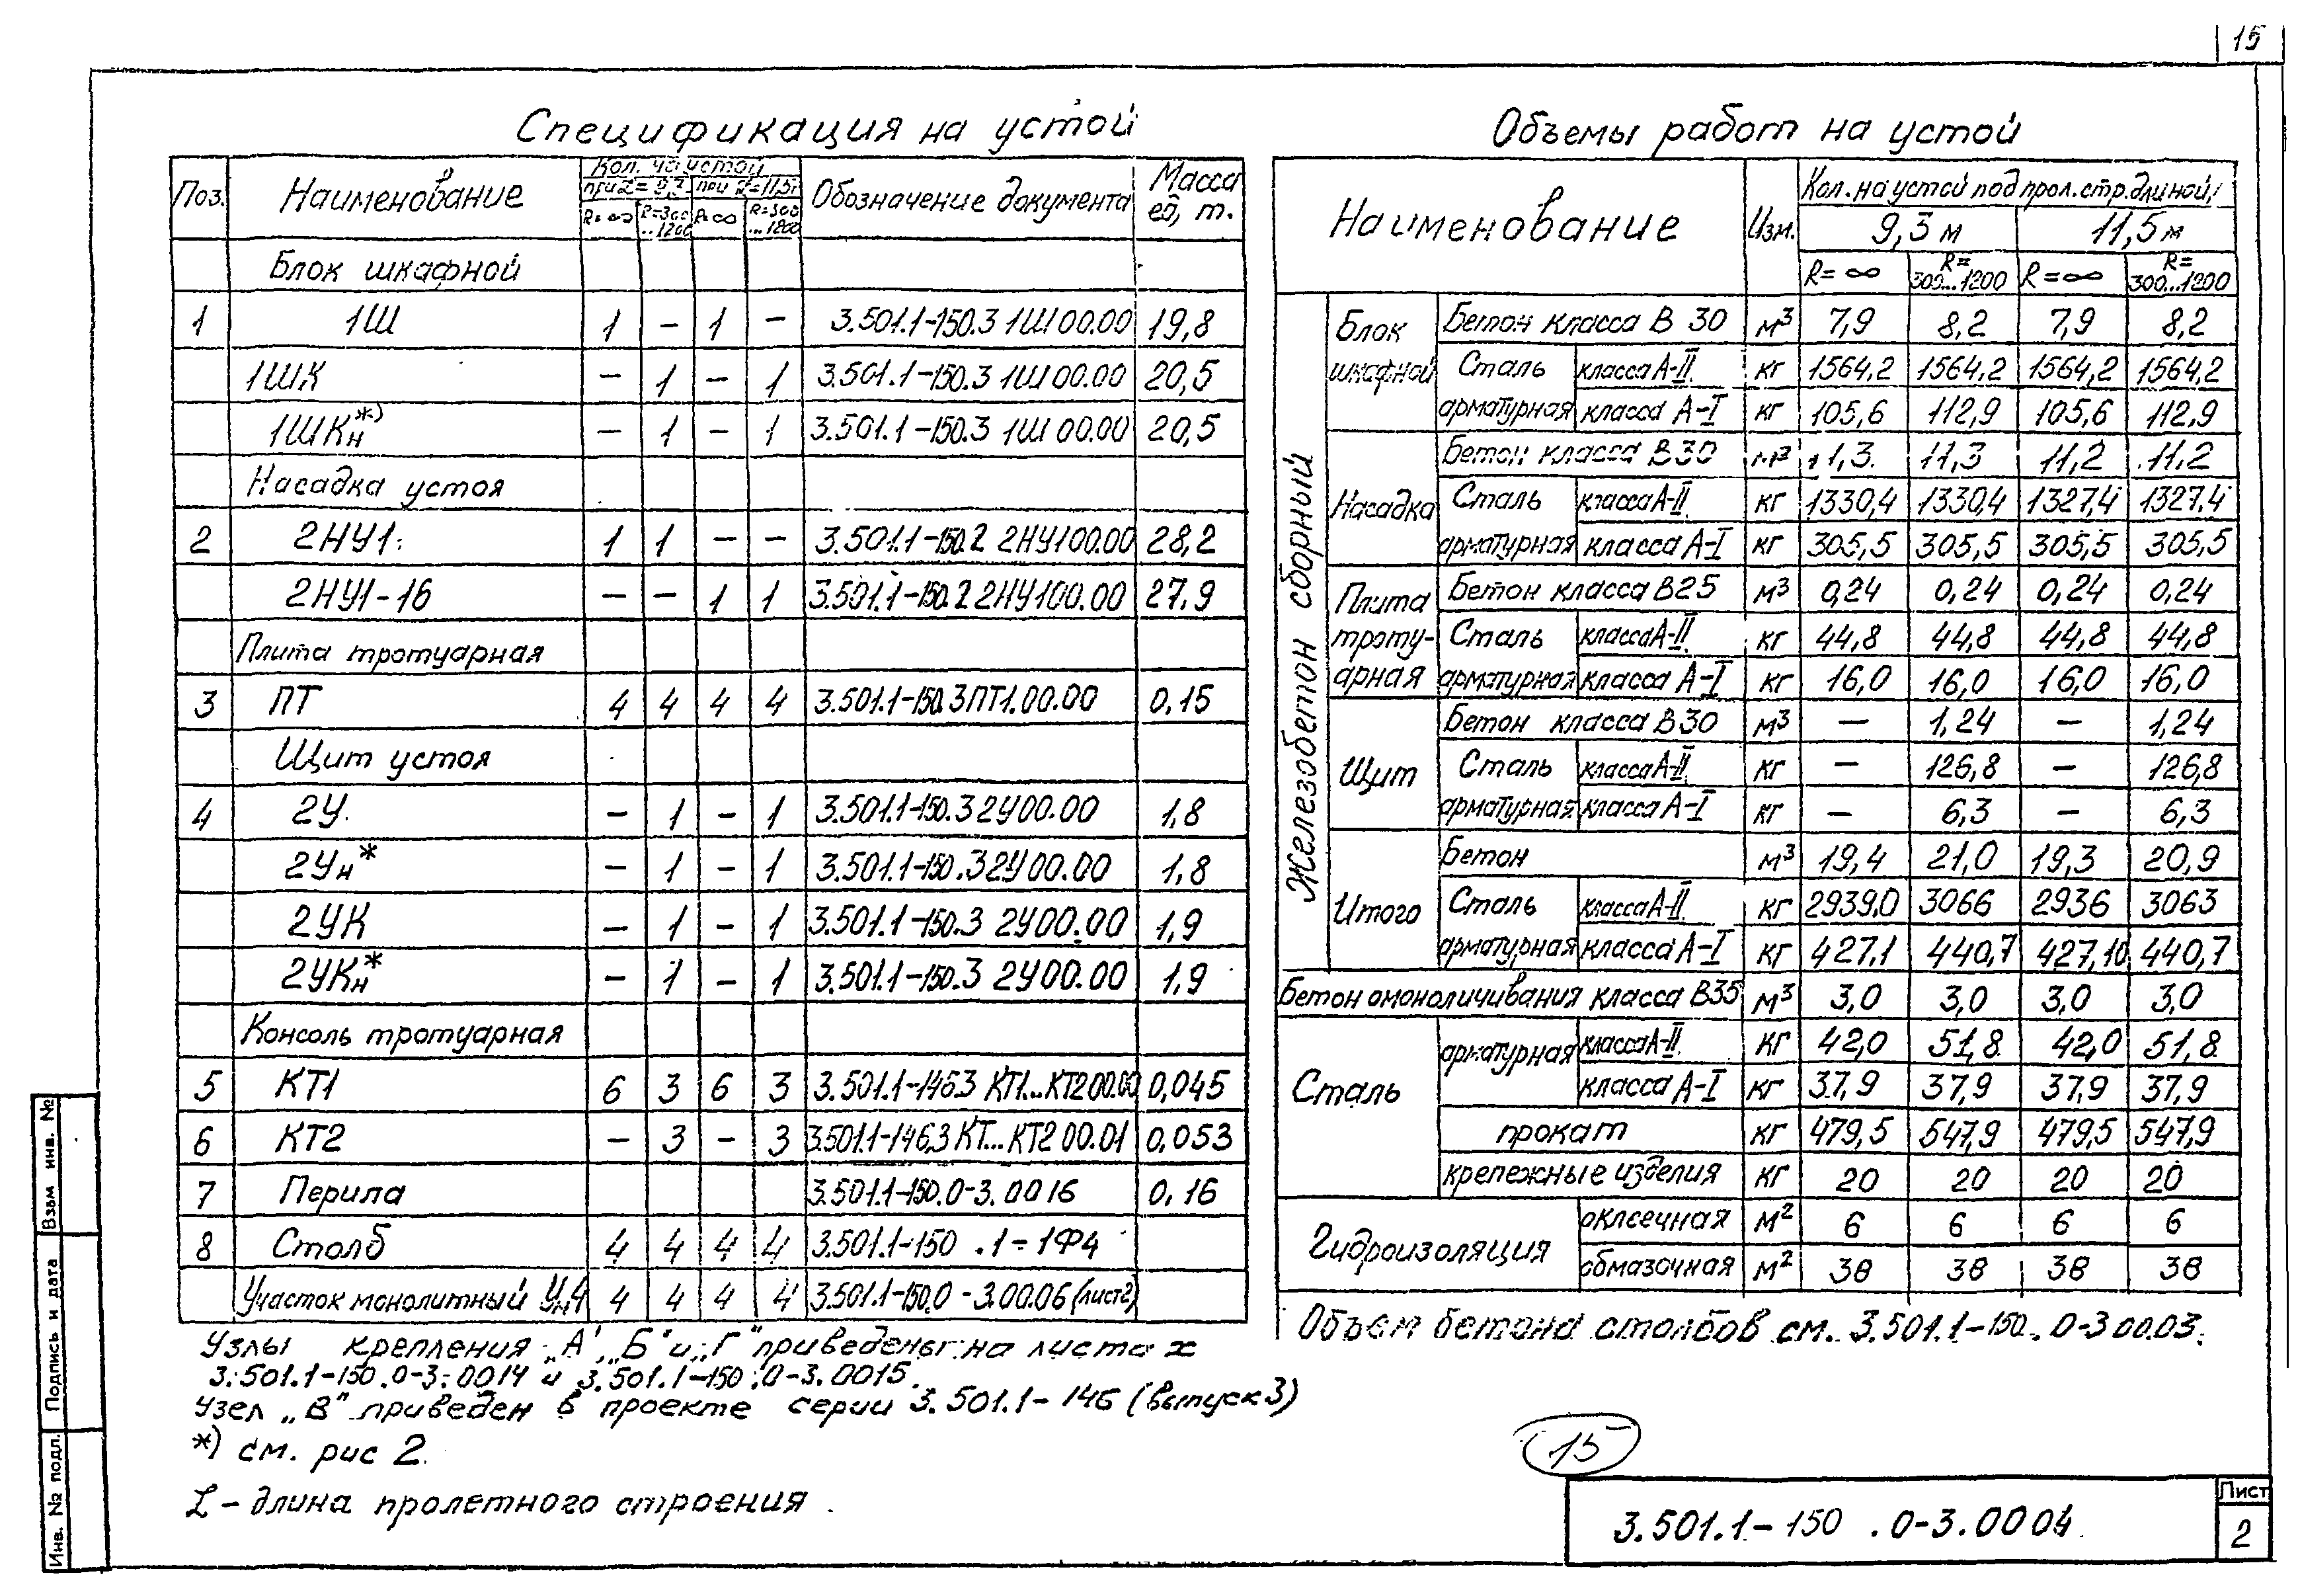 15
Спецификация на устой
Поз. Наименование Кол. на устой Обозначение документа Масса ед, т.
при L=9,3 при L=11,5
R=∞ R=300...1200 R=∞ R=300...1200
Блок шкафной
1 1Ш 1 – 1 – 3.501.1-150.3 1Ш 00.00 19,8
1ШК – 1 – 1 3.501.1-150.3 1Ш 00.00 20,5
1ШКн ж) – 1 – 1 3.501.1-150.3 1Ш 00.00 20,5
Насадка устоя
2 2НУ1 1 1 – – 3.501.1-150.2 2НУ100.00 28,2
2НУ1-16 – – 1 1 3.501.1-150.2 2НУ100.00 27,9
Плита тротуарная
3 ПТ 4 4 4 4 3.501.1-150.3ПТ1.00.00 0,15
Щит устоя
4 2У – 1 – 1 3.501.1-150.3 2У00.00 1,8
2Ун* – 1 – 1 3.501.1-150.3 2У00.00 1,8
2УК – 1 – 1 3.501.1-150.3 2У00.00 1,9
2УКн* – 1 – 1 3.501.1-150.3 2У00.00 1,9
Консоль тротуарная
5 КТ1 6 3 6 3 3.501.1-146.3 КТ1...КТ2 00.00 0,045
6 КТ2 – 3 – 3 3.501.1-146.3 КТ...КТ2 00.01 0,053
7 Перила 3.501.1-150.0-3.0016 0,16
8 Столб 4 4 4 4 3.501.1-150 .1-1Ф4
Участок монолитный Ум4 4 4 4 4 3.501.1-150.0-3.00.06 (лист2)
Узлы крепления „А", „Б" и „Г" приведены на листах
3.501.1-150.0-3.0014 и 3.501.1-150.0-3.0015.
Узел „В" приведен в проекте серии 3.501.1-146 (выпуск 3)
*) см. рис 2.
L – длина пролетного строения.
Объемы работ на устой
Наименование Изм. Кол. на устой под прол. стр. длиной,
9,3 м 11,5 м
R=∞ R=300...1200 R=∞ R=300...1200
Железобетон сборный
Блок шкафной Бетон класса В 30 м³ 7,9 8,2 7,9 8,2
Сталь арматурная класса А-II кг 1564,2 1564,2 1564,2 1564,2
класса А-I кг 105,6 112,9 105,6 112,9
Насадка Бетон класса В30 м³ 11,3 11,3 11,2 11,2
Сталь арматурная класса А-II кг 1330,4 1330,4 1327,4 1327,4
класса А-I кг 305,5 305,5 305,5 305,5
Плита тротуарная Бетон класса В25 м³ 0,24 0,24 0,24 0,24
Сталь арматурная класса А-II кг 44,8 44,8 44,8 44,8
класса А-I кг 16,0 16,0 16,0 16,0
Щит Бетон класса В30 м³ – 1,24 – 1,24
Сталь арматурная класса А-II кг – 126,8 – 126,8
класса А-I кг – 6,3 – 6,3
Итого Бетон м³ 19,4 21,0 19,3 20,9
Сталь арматурная класса А-II кг 2939,0 3066 2936 3063
класса А-I кг 427,1 440,7 427,10 440,7
Бетон омоноличивания класса В35 м³ 3,0 3,0 3,0 3,0
Сталь арматурная класса А-II кг 42,0 51,8 42,0 51,8
класса А-I кг 37,9 37,9 37,9 37,9
прокат кг 479,5 547,9 479,5 547,9
крепежные изделия кг 20 20 20 20
Гидроизоляция оклеечная м² 6 6 6 6
обмазочная м² 38 38 38 38
Объем бетона столбов см. 3.501.1-150.0-3 00.03.
15
3.501.1-150 .0-3.0004
Лист
2
Взам инв. №
Подпись и дата
Инв. № подл.